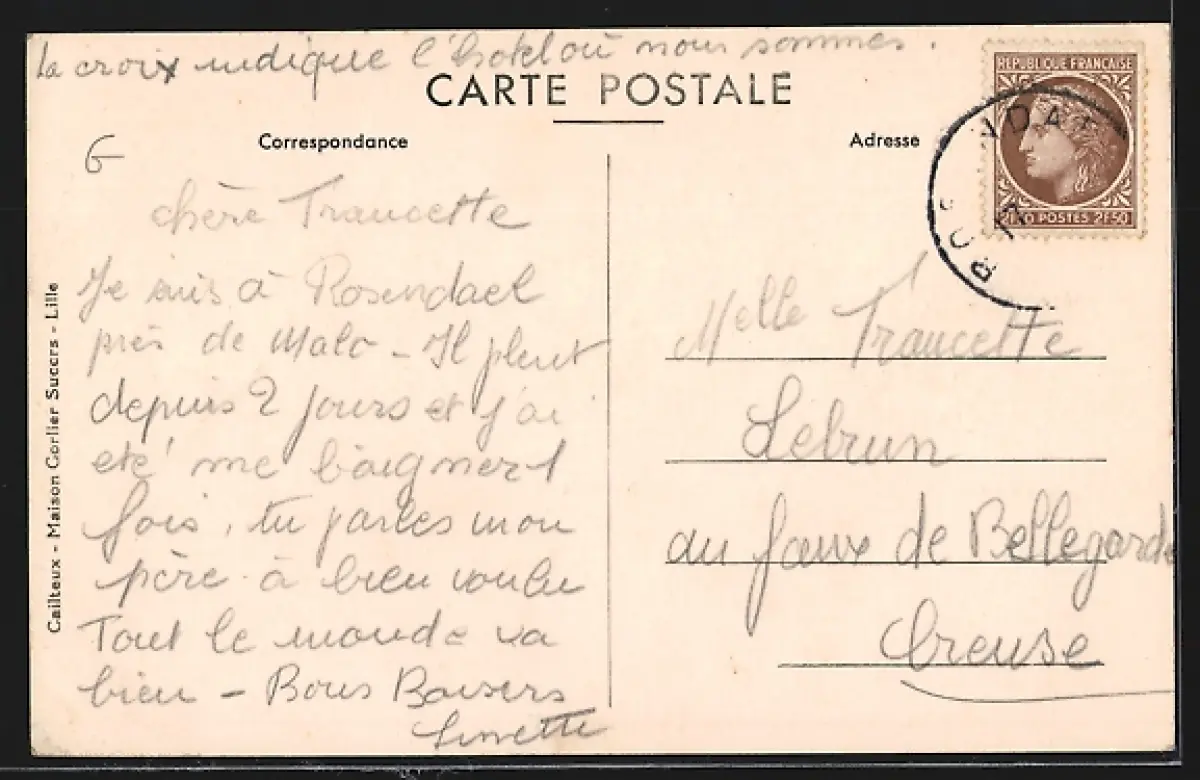 la croix indique l'hotel où nous sommes.
CARTE POSTALE
Correspondance
Adresse
REPUBLIQUE FRANÇAISE
POSTES 2F50
G
chère Francette
Je suis à Rosendael
près de Malo - Il pleut
depuis 2 jours et j'ai
été me baigner 1
fois, tu parles mon
père à bien voulu
Tout le monde va
bien - Bons Baisers
Linette
Melle Francette
Lebrun
au faux de Bellegarde
Creuse
Cailteux - Maison Corlier Succrs - Lille